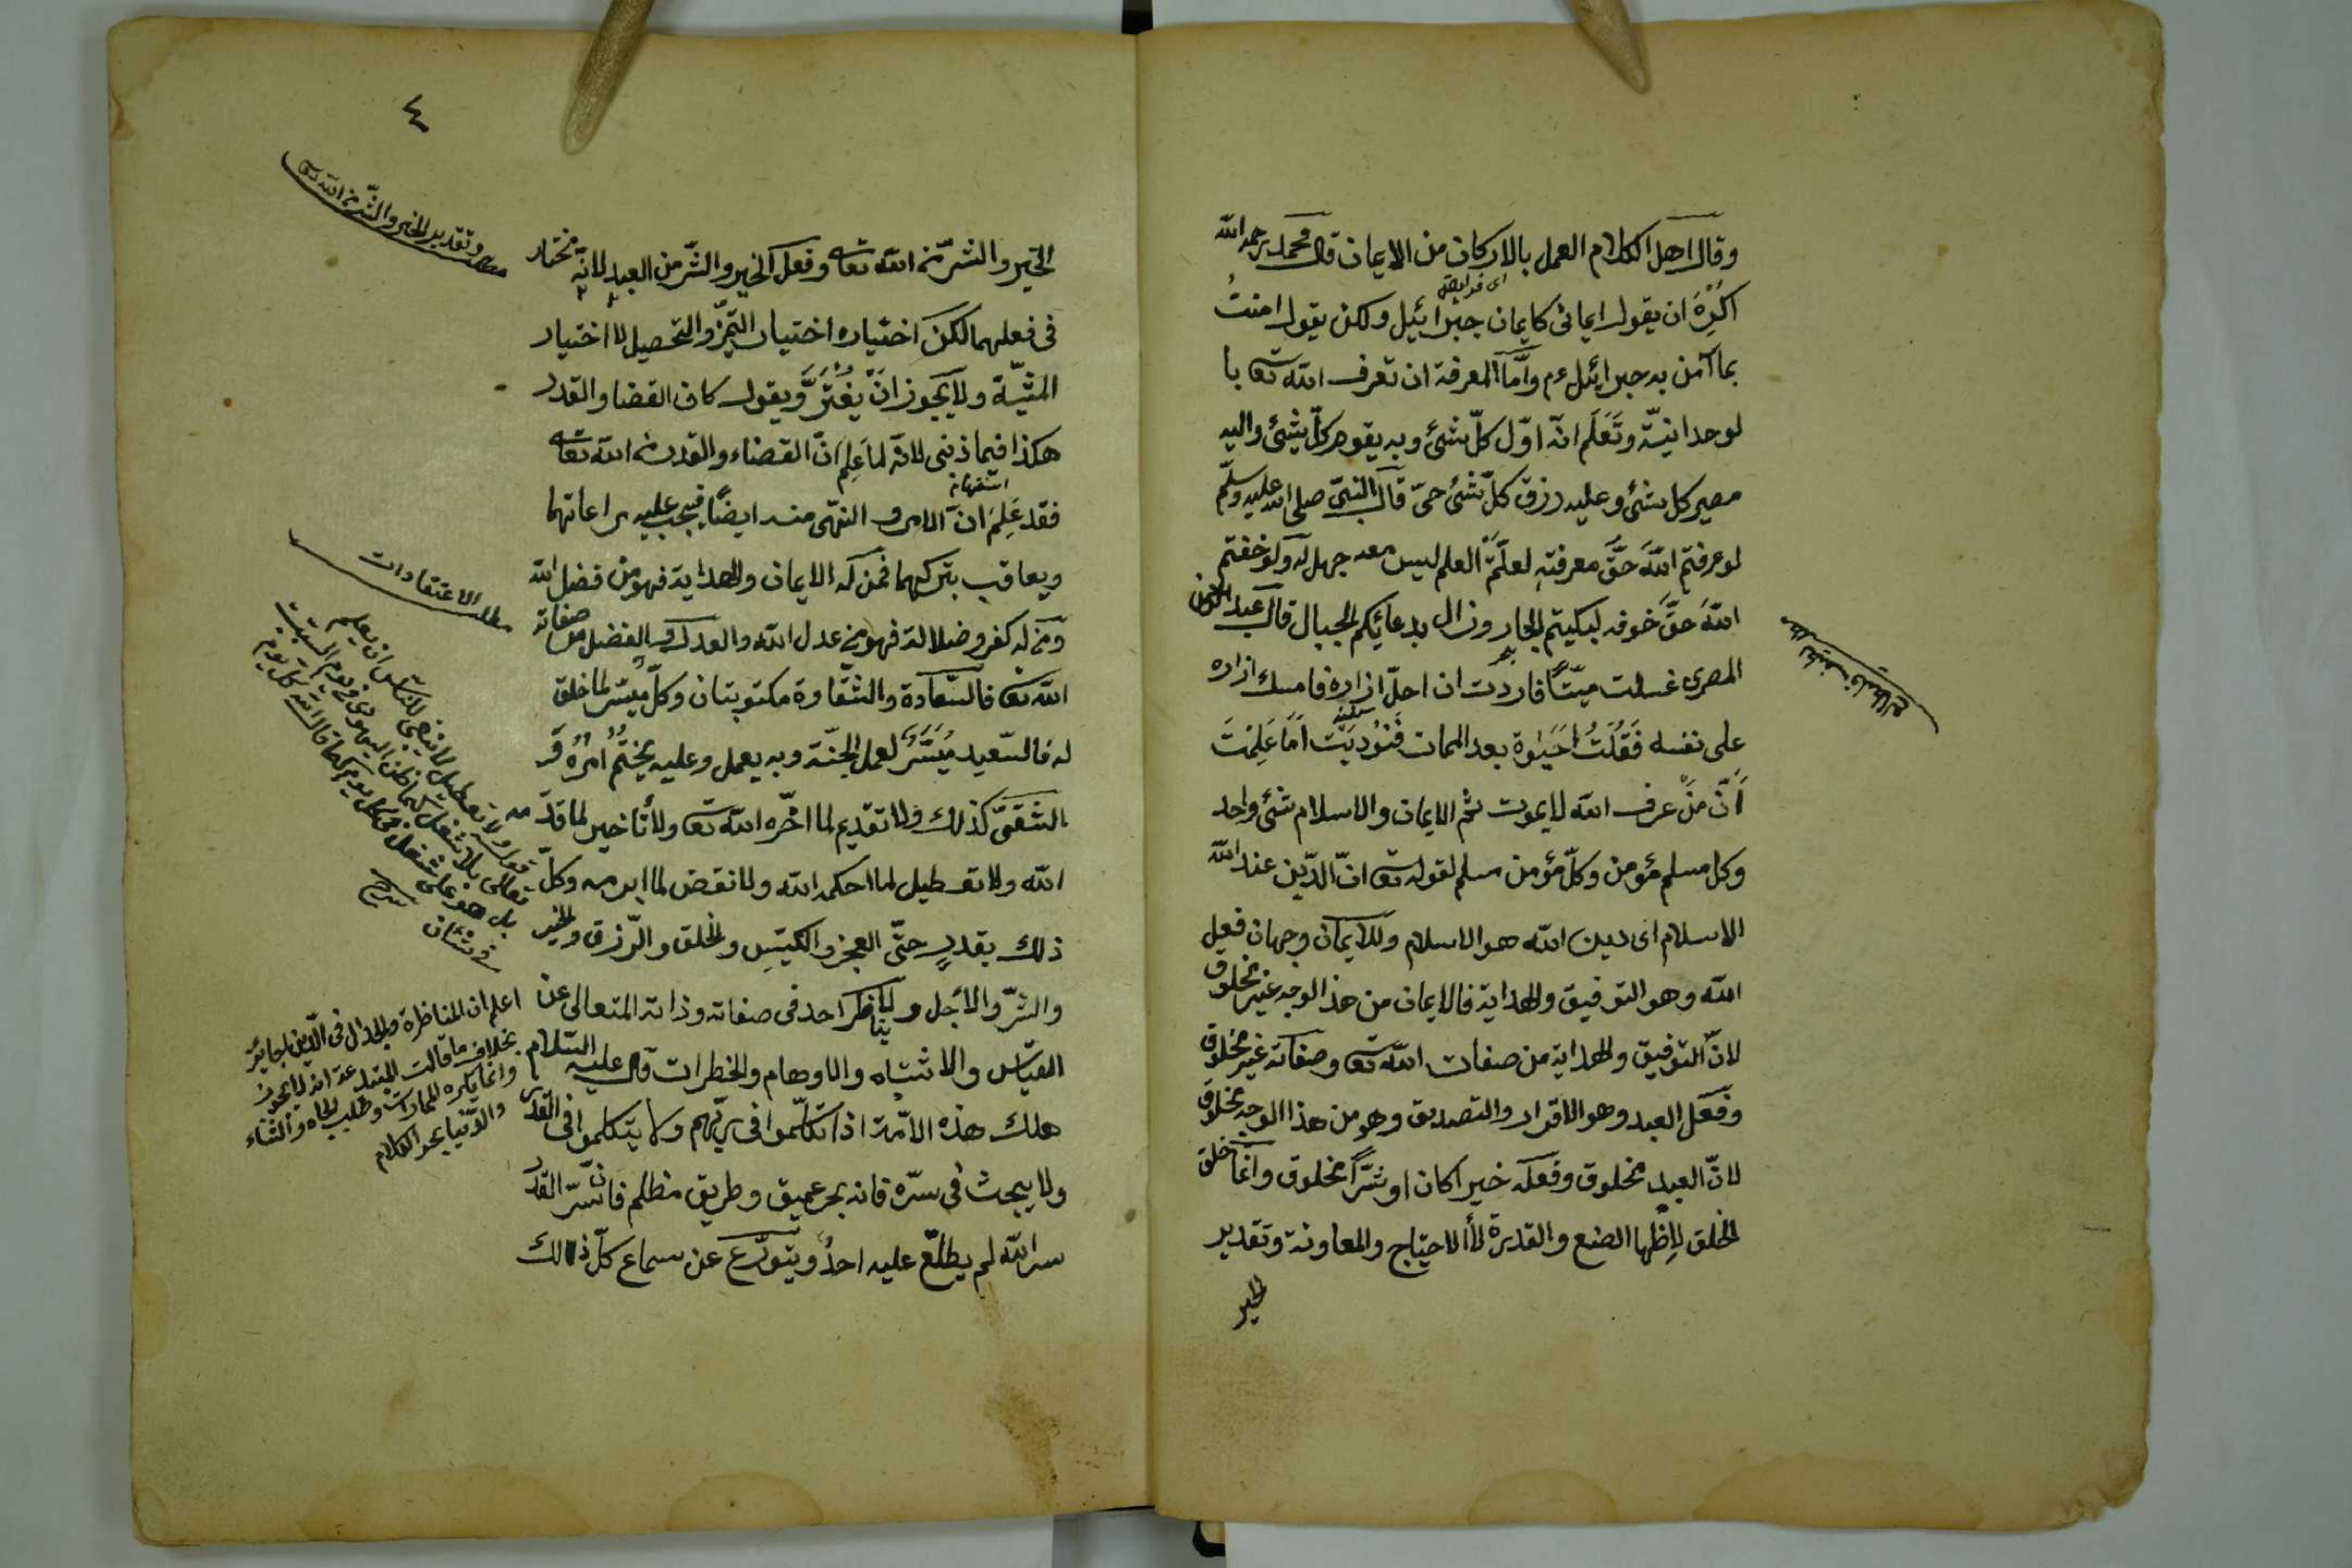 وقال اهل الكلام العمل بالاركان من الايمان قال محمد رحمه الله
اى فرايض
اكره ان يقول ايمانى كايمان جبرائيل ولكن يقول امنت
بما آمن به جبرائيل ءم وأمّا المعرفة ان تعرف الله تعا با
لوحدانيّة وتعلم انّه اوّل كلّ شئ وبه يقوم كلّ شئ واليه
مصير كل شئ وعليه رزق كلّ شئ حىّ قال النبىّ صلى الله عليه وسلّم
لو عرفتم الله حقّ معرفته لعلّمتم العلم ليس معه جهل له ولو خفتم
الله حقّ خوفه لبكيتم البحار وزال بدعائكم الجبال قال عبد
المصرى غسلت ميّتًا فاردت ان احلّ ازاره فامسك ازاره
على نفسه فقلت احيوة بعد الممات فنوديت اما علمت
أنّ من عرف الله لا يموت ثم الايمان والاسلام شئ واحد
وكل مسلم مؤمن وكلّ مؤمن مسلم لقوله تعا انّ الدّين عند الله
الاسلام اى دين الله هو الاسلام وللايمان وجهان فعل
الله وهو التوفيق والهداية فالايمان من هذا الوجه غير مخلوق
لانّ التوفيق والهداية من صفات الله تعا وصفاته غير مخلوق
وفعل العبد وهو الاقرار والتصديق وهو من هذا الوجه مخلوق
لانّ العبد مخلوق وفعله خيرا كان او شرًّا مخلوق وانّما خلق
الخلق لإظهار الصنع والقدرة لا الاحتياج والمعاونة وتقدير
الخير
٤
وتقدير الخير والشّر من الله تعا
الخير والشّر من الله تعا وفعل الخير والشّر من العبد لانّه مختار
فى فعلهما لكن اختياره اختيار التميّز والتحصيل لا اختيار
المشيّة ولا يجوز انْ يغترّ ويقول كان القضا والقدر
هكذا فيما ذنبى لانّه لما علم انّ القضاء والقدر من الله تعا
فقد علم انّ الامر و النهى منه ايضًا فيجب عليه مراعاتهما
ويعاقب بتركهما فمن له الايمان والهداية فهو من فضل الله
ومن له كفر وضلالة فهو من عدل الله والعدل والفضل من صفاته
الله تعا فالسّعادة والشّقاوة مكتوبتان وكلّ ميسّر لما خلق
له فالسّعيد ميسّر لعمل الجنّة وبه يعمل وعليه يختم امره و
الشقىّ كذلك ولا تقديم لما اخّره الله تعا ولا تأخير لما قدّمه
الله ولا تعطيل لما احكمه الله ولا نقض لما ابرمه وكلّ
ذلك بقدرٍ حتّى العجز والكيّسِ والخلق والرّزق والخير
والشّر والاجل و لا يناظر احد فى صفاته وذاته المتعالى عن
القيّاس والاشتباه والاوهام والخطرات قال عليه السّلام
هلك هذه الامّة اذا تكلّموا فى ربّهم ولا يتكلموا فى القدر
ولا يبحث فى سرّه فانه بحر عميق وطريق مظلم فانّ سرّ القدر
سر الله لم يطلّع عليه احدٌ ويتورّع عن سماع كلّ ذالك
مطلب الاعتقادات
قوله ولا تعطيل لا ينبغى للنّاس ان يعلم
تعالى بلا شغل كما ظن اليهودى فى يوم السّبت
بل هو على شغل فى كل يوم كما قال الله كل يوم
فى شأن
اعلم ان المناظرة والجدال فى الدّين جائز
بخلاف ما قالت المبتدعة انه لا يجوز
وانما يكره المماراة وطلب الجاه والثناء
والدّنيا بحر الكلام